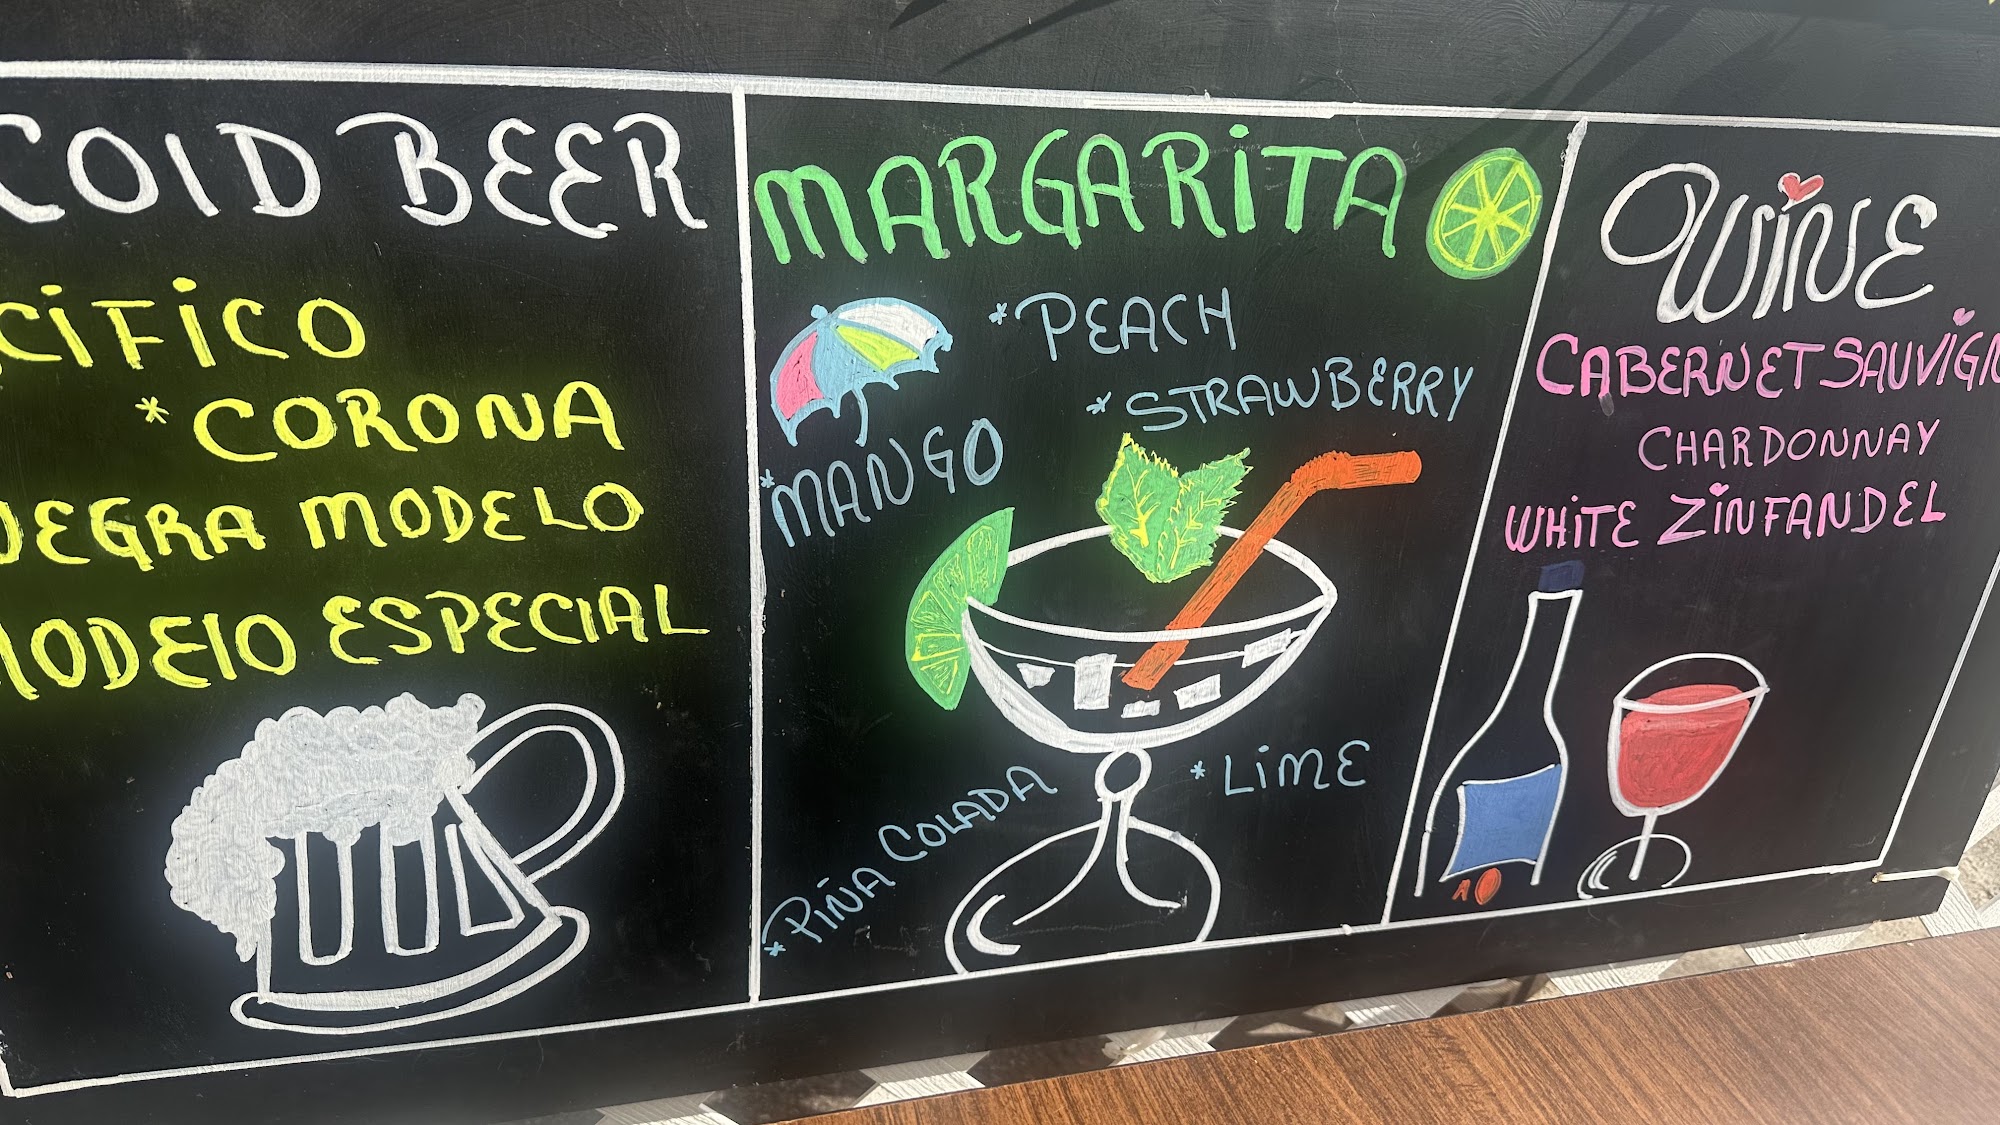 COlD BEER
CiFiCO
* CORONA
NEGRA MODELO
MODElO ESPECIAL
MARGARiTA
* PEACH
* STRAWBERRY
* MANGO
* LiME
* PIÑA COLADA
WiNE
CABERNET SAUViGN
CHARDONNAY
WHiTE ZiNFANDEL